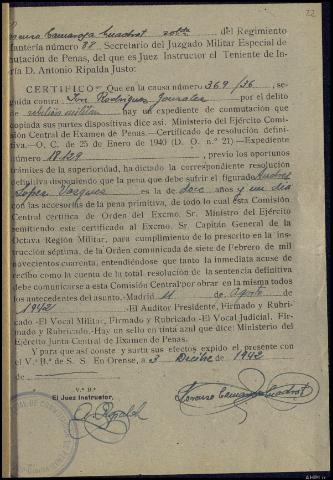 22
Lorenzo Camarazа Cuadrat soltº del Regimiento
fantería número 88, Secretario del Juzgado Militar Especial de
mutación de Penas, del que es Juez Instructor el Teniente de In-
ía D. Antonio Ripalda Justo:
CERTIFICO: Que en la causa número 369/36, se-
guida contra José Rodríguez González por el delito
de rebelión militar hay un expediente de conmutación que
copiada sus partes dispositivas dice así. Ministerio del Ejército Comi-
sión Central de Examen de Penas.—Certificado de resolución defini-
tiva.—O. C. de 25 de Enero de 1940 (D. O. n.º 21)—Expediente
número 18.129, previo los oportunos
trámites de la superioridad, ha dictado la correspondiente resolución
definitiva disponiendo que la pena que debe sufrir el figurado Andrés
López Vázquez es la de doce años y un día
con las accesorias de la pena primitiva, de todo lo cual esta Comisión
Central certifica de Orden del Excmo. Sr. Ministro del Ejército
remitiendo este certificado al Excmo. Sr. Capitán General de la
Octava Región Militar, para cumplimiento de lo prescrito en la ins-
trucción séptima, de la Orden comunicada de siete de Febrero de mil
novecientos cuarenta, entendiéndose que tanto la inmediata acuse de
recibo como la cuenta de la total resolución de la sentencia definitiva
debe comunicarse a esta Comisión Central por obrar en la misma todos
los antecedentes del asunto.-Madrid 11 de Agosto de
1942 -El Auditor Presidente, Firmado y Rubri-
cado.-El Vocal Militar, Firmado y Rubricado.-El Vocal Judicial. Fir-
mado y Rubricado.-Hay un sello en tinta azul que dice: Ministerio del
Ejército Junta Central de Examen de Penas.
Y para que así conste y surta sus efectos expido el presente con
el V.º B.º de S. S. En Orense, a 3 Dicbre de 1942
de
V.º B.º
El Juez Instructor,
A. Ripalda
Lorenzo Camaraza Cuadrat